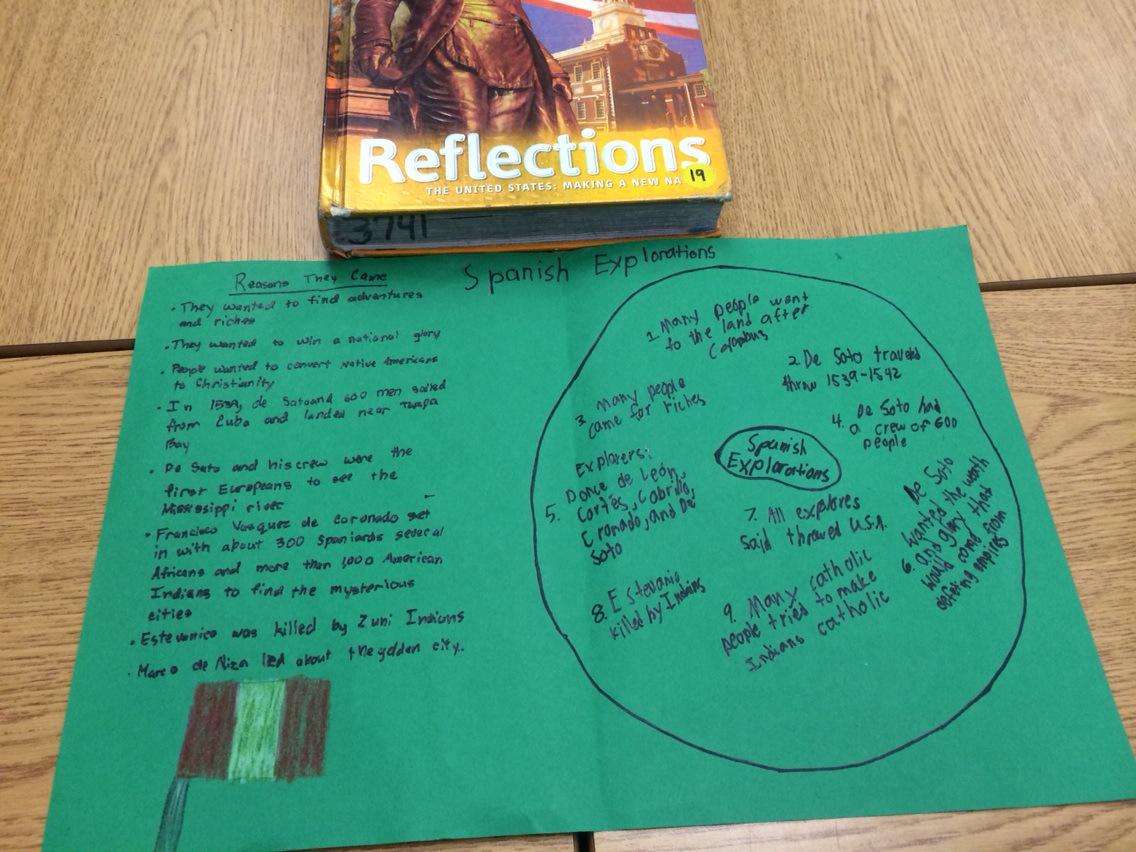 Reflections
THE UNITED STATES: MAKING A NEW NA
19
3741
Spanish Explorations
Reasons They Came
• They wanted to find adventures
and riches
• They wanted to win a national glory
• People wanted to convert Native Americans
to Christianity
• In 1539, de Soto and 600 men sailed
from Cuba and landed near Tampa
Bay
• De Soto and his crew were the
first Europeans to see the
Mississippi river
• Francisco Vasquez de coronado set
in with about 300 spaniards several
Africans and more than 1,000 American
Indians to find the mysterious
cities
• Estevanico was killed by Zuni Indians
• Marco de Niza lied about the golden city.
1. Many people want
to the land after
Colombus
2. De Soto traveled
throw 1539-1542
3. Many people
came for riches
4. De Soto had
a crew of 600
people
Spanish
Explorations
Explorers:
5. Donce de León,
Cortés, Cabrillo,
Cronado, and De
Soto
6. De Soto
wanted the wealth
and glory that
would come from
defeting empires
7. All explores
Said throwed U.S.A.
8. Estevanio
killed by Indians
9. Many catholic
people tried to make
Indians catholic